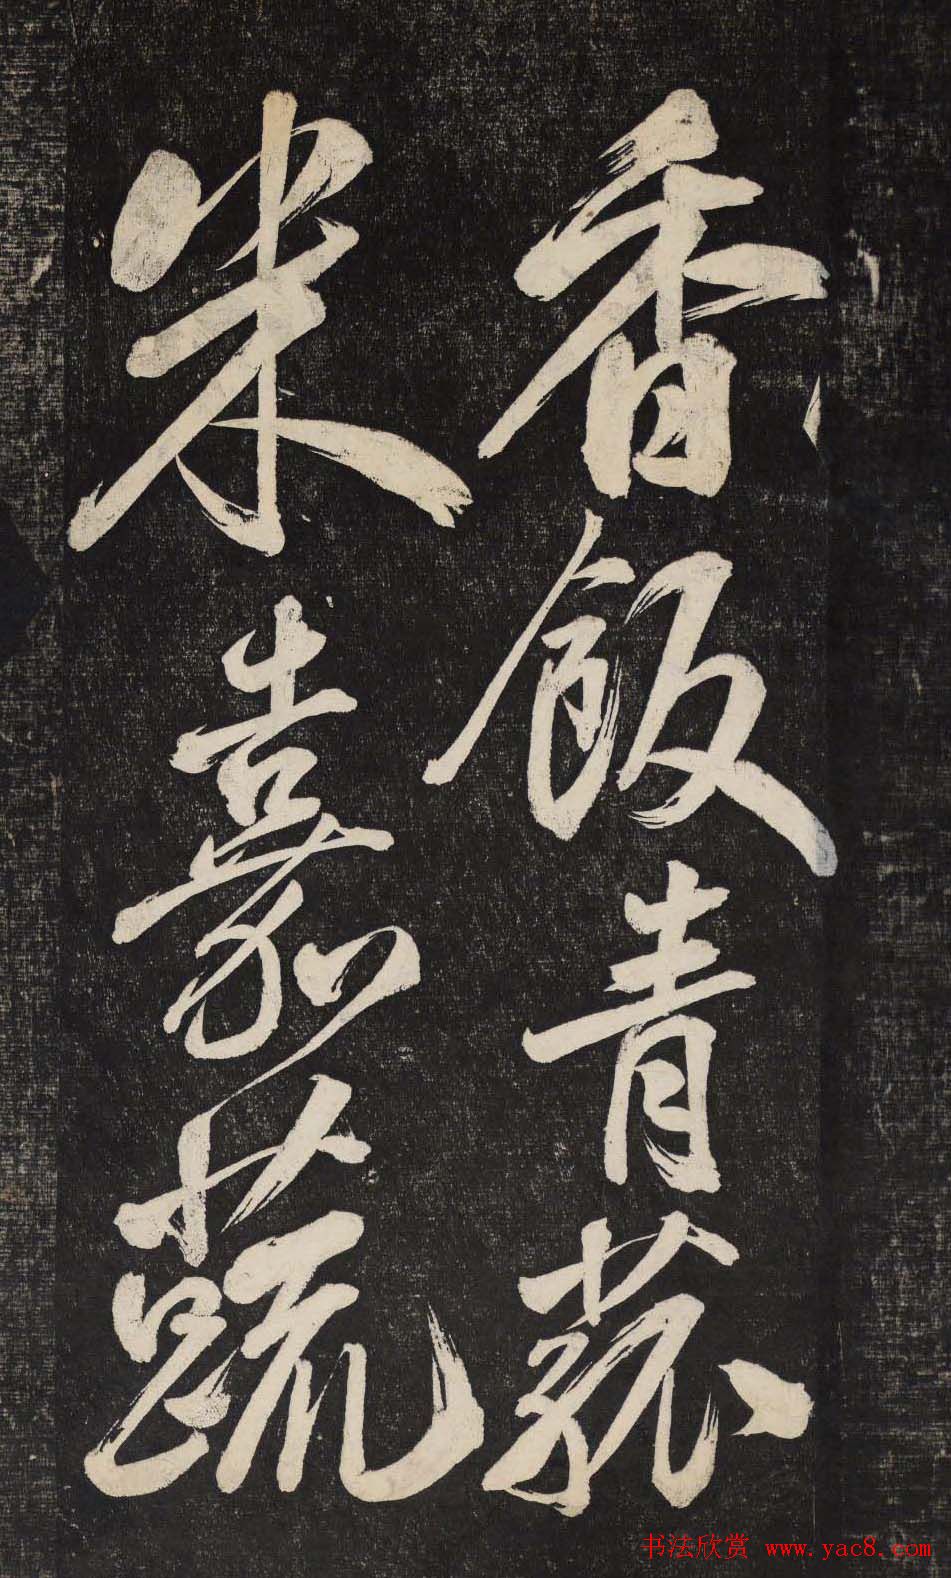 香飯青菰
米嘉蔬
书法欣赏 www.yac8.com